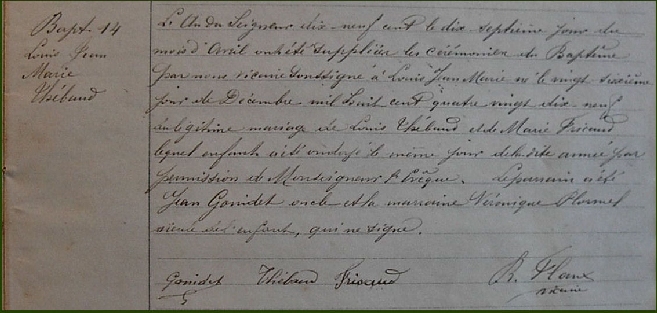 Bapt. 14
Louis Jean
Marie
Thébaud
L'An du Seigneur dix-neuf cent le dix septième jour du
mois d'Avril ont été suppliées les cérémonies du Baptême
par nous vicaire soussigné à Louis Jean Marie né le vingt sixième
jour de Décembre mil huit cent quatre vingt dix neuf
du légitime mariage de Louis Thébaud et de Marie
lequel enfant a été ondoyé le même jour de ladite année par
permission de Monseigneur l'Evêque. Le parrain a été
Jean Gonidet oncle et la marraine Véronique
de l'enfant, qui ne signe.
Gonidet Thébaud
vicaire